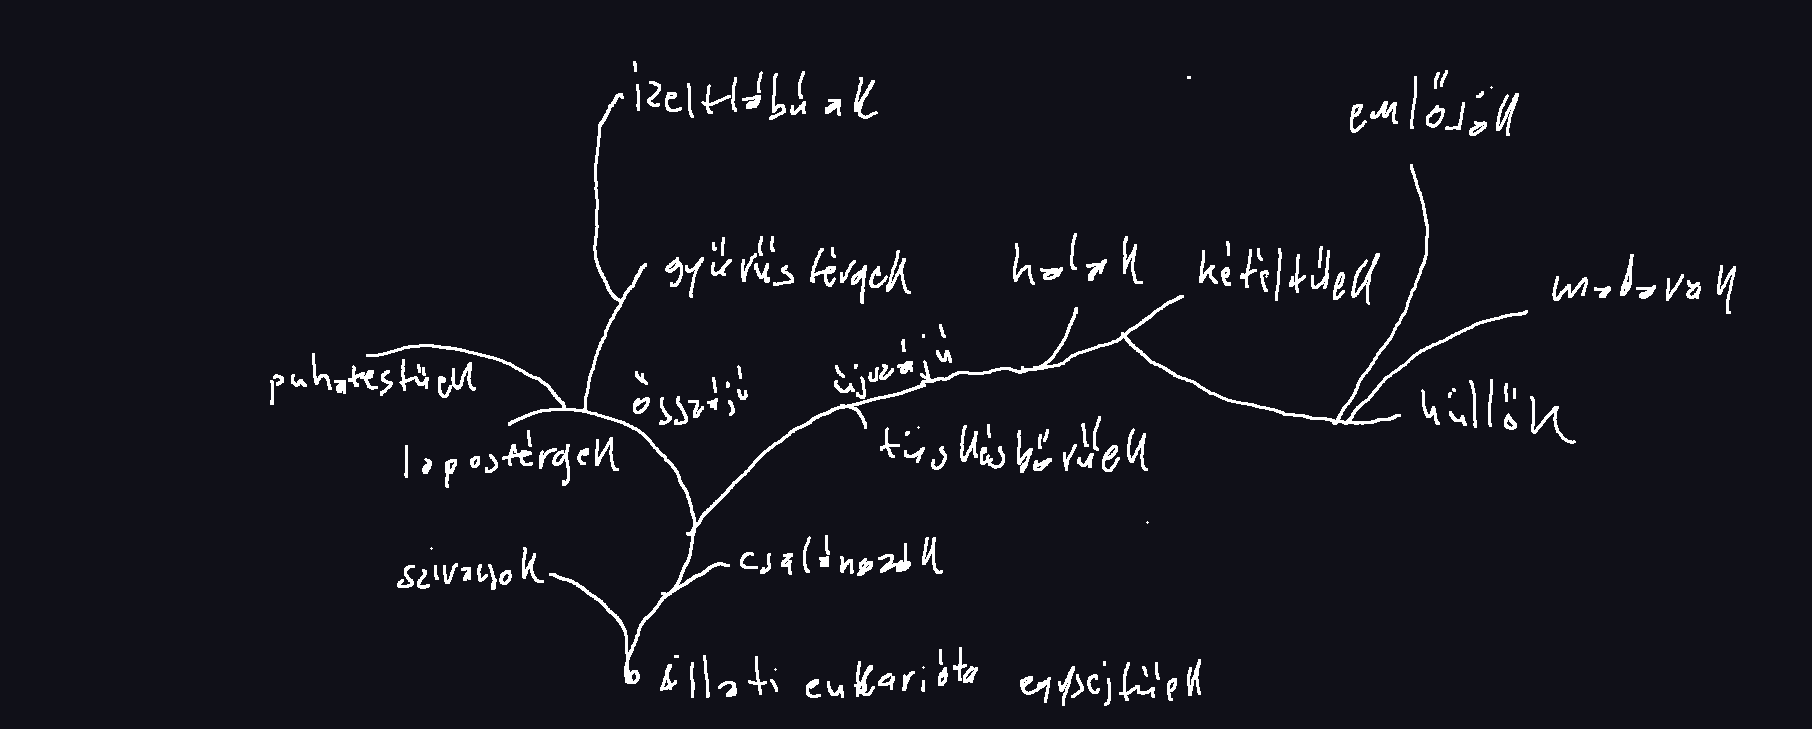 ízeltlábúak
emlősök
gyűrűs férgek
halak
kétéltűek
madarak
puhatestűek
ősszájú
újszájú
hüllők
laposférgek
tüskésbőrűek
szivacsok
csalánozók
állati eukarióta egysejtűek